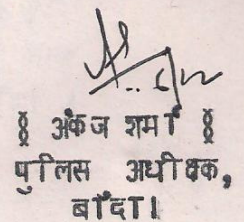 § अंकज शर्मा §
पुलिस अधीक्षक,
बाँदा।